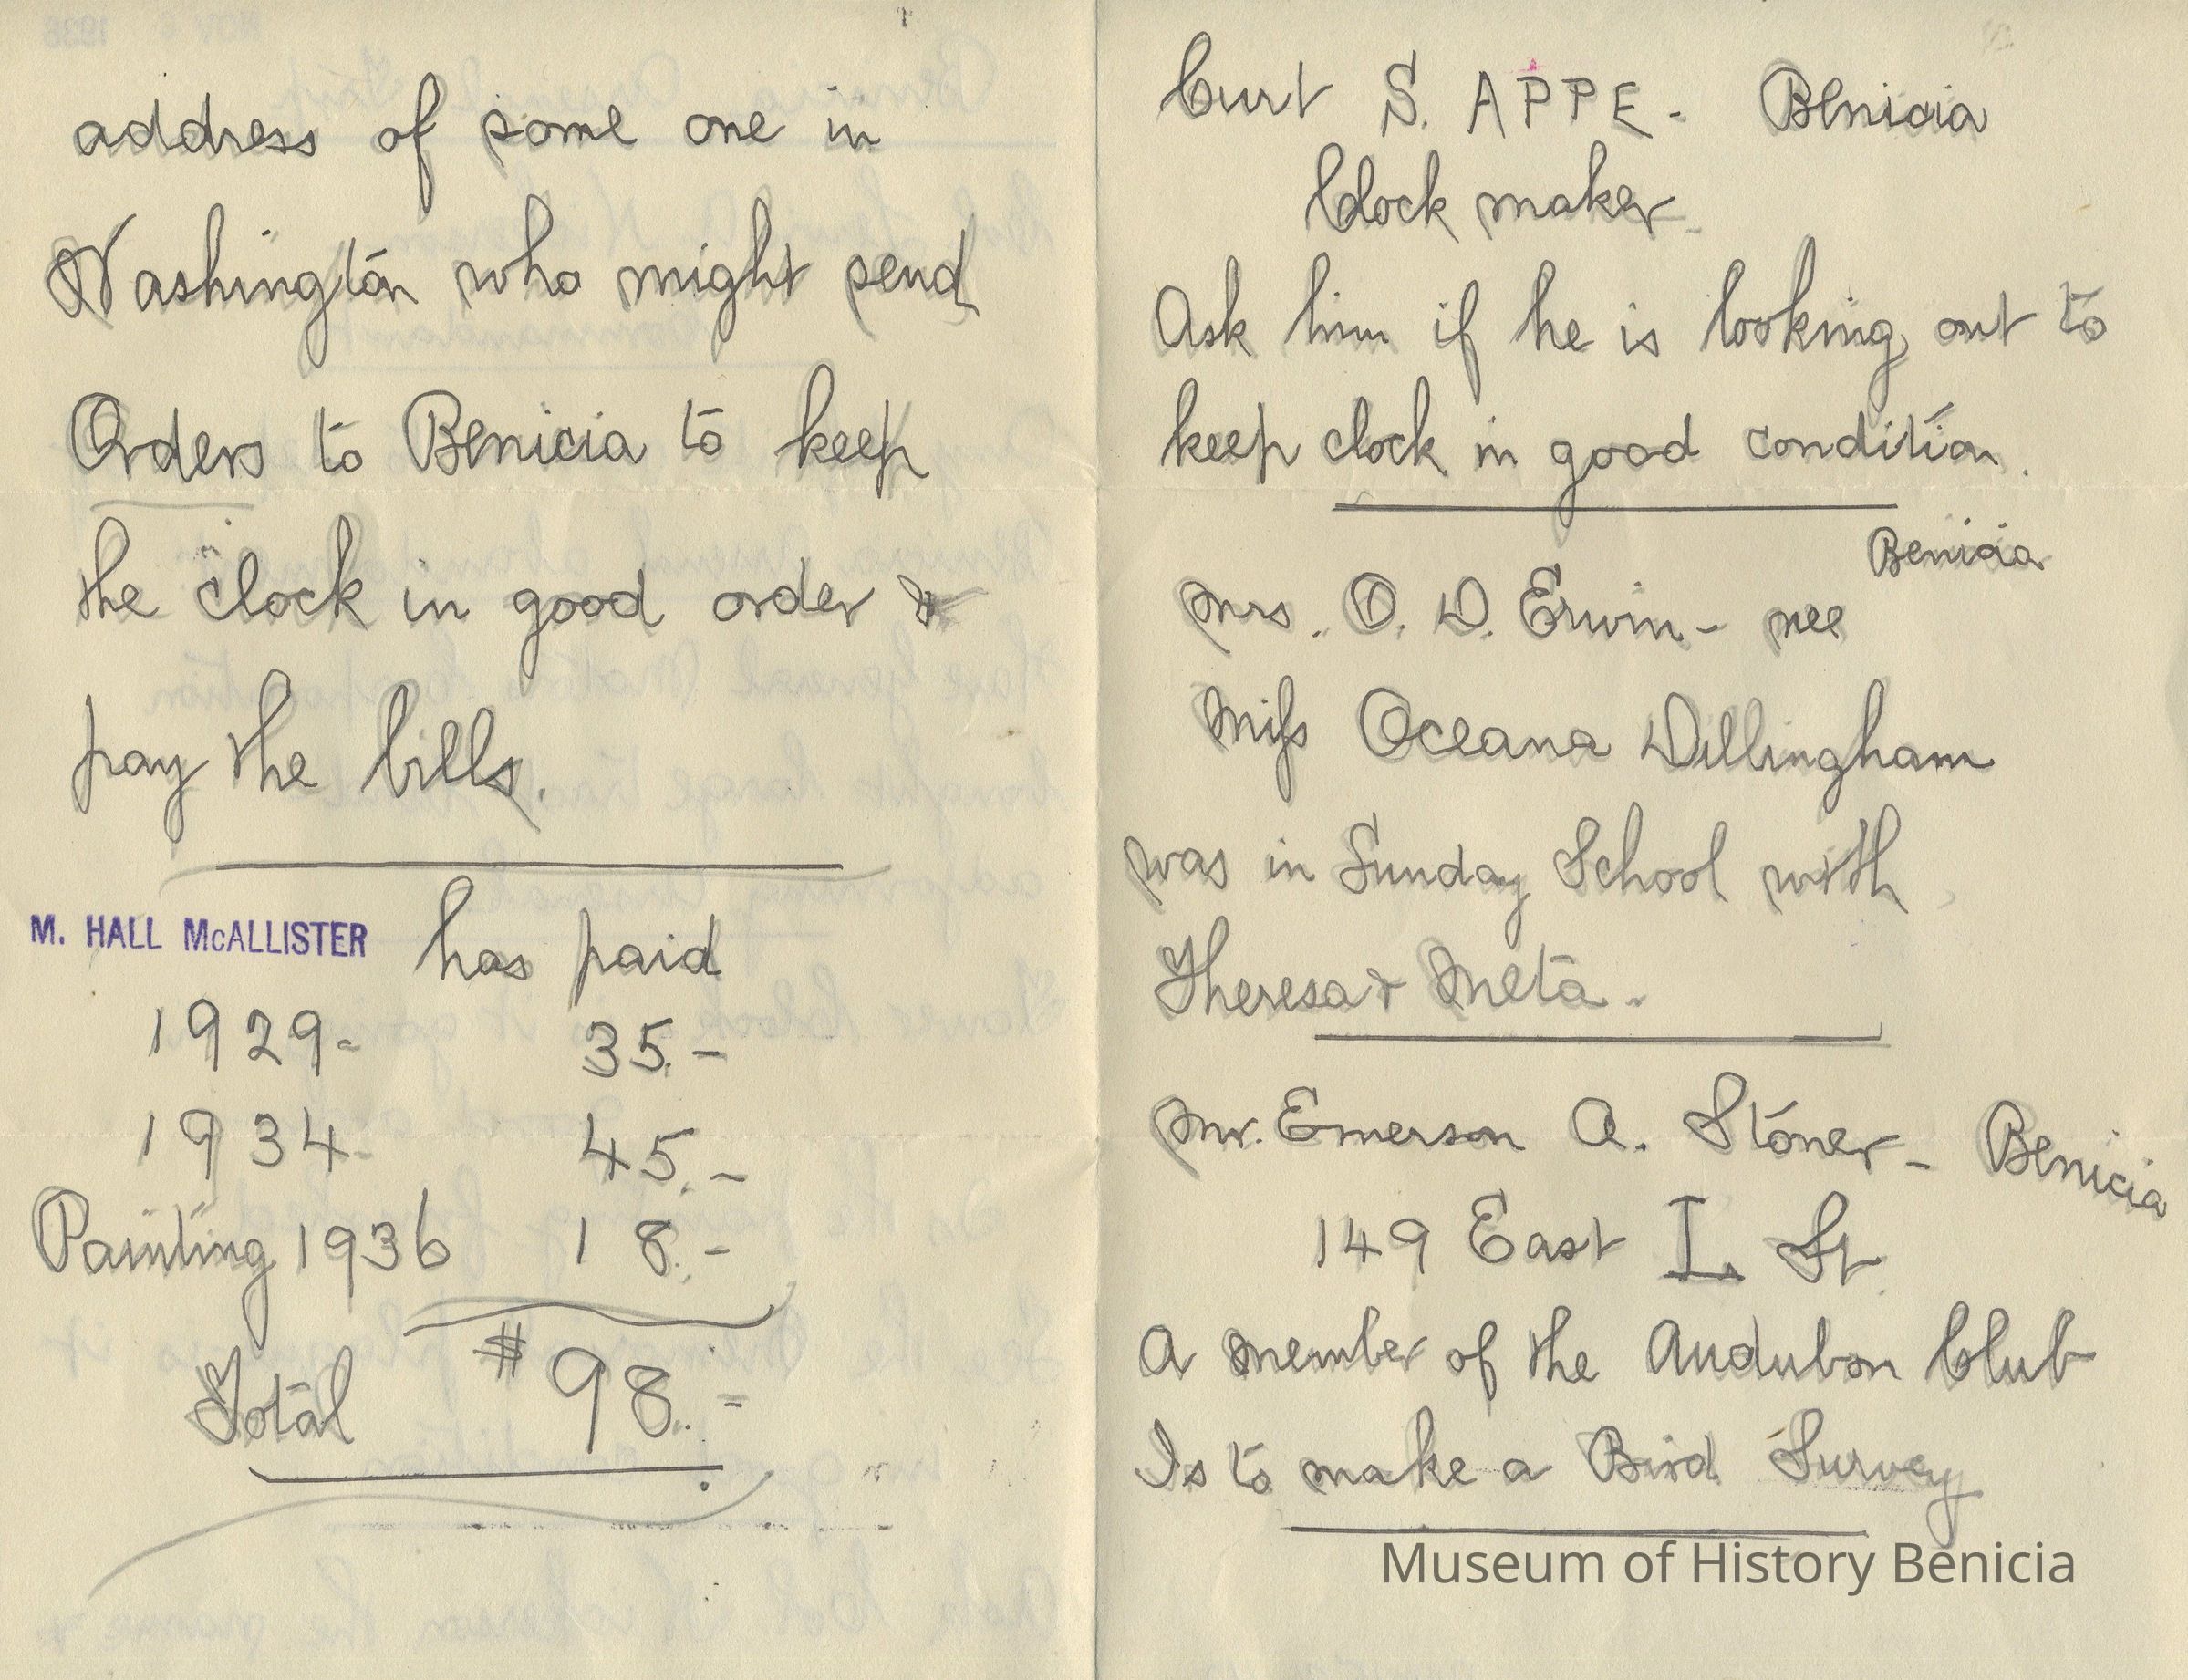 address of some one in
Washington who might send
Orders to Benicia to keep
the clock in good order &
pay the bills.
M. HALL McALLISTER has paid
1929- 35.-
1934- 45.-
Painting 1936 18.-
Total $98.=
Curt S. APPE - Benicia
Clock maker.
Ask him if he is looking out to
keep clock in good condition.
Benicia
Mrs. O. D. Erwin - nee
Miss Oceana Dillingham
was in Sunday School with
Theresa & Meta.
Mr. Emerson A. Stoner - Benicia
149 East L St
A member of the Audubon Club
Is to make a Bird Survey
Museum of History Benicia